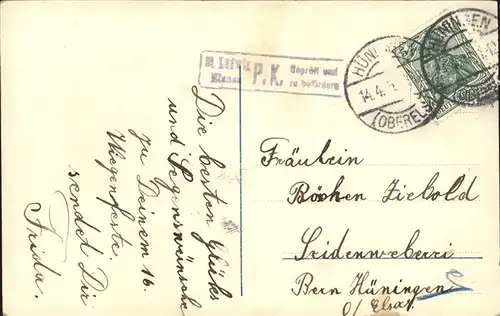 St. Ludwig P.K. Geprüft und
Elsass zu befördern
HÜNINGEN
14.4.
(OBERELS
HÜNINGEN
Die besten Glücks
und Segenswünsche
zu Deinem 16.
Wiegenfeste.
sendet Dir
Frida.
Fräulein
Röschen Ziebold
Seidenweberei
Bern Hüningen
o/ Elsaß.